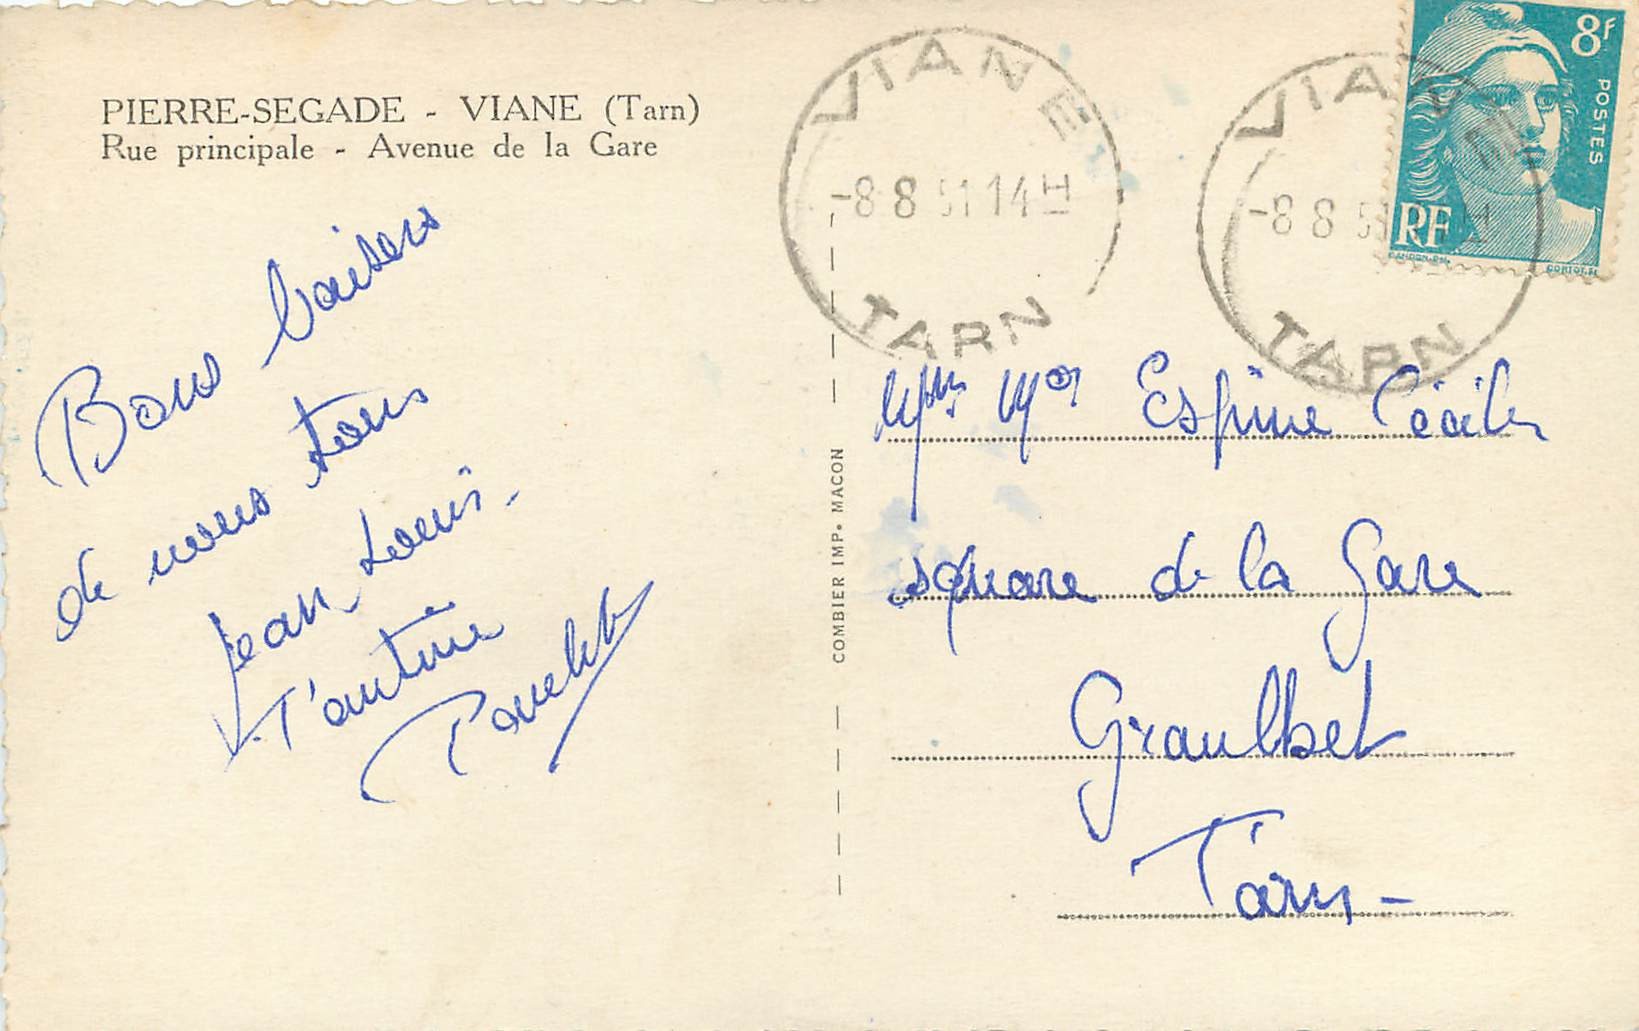 PIERRE-SEGADE - VIANE (Tarn)
Rue principale - Avenue de la Gare
Bons baisers
de nous tous
Jean Louis -
Tantine
Paulette
COMBIER IMP. MACON
VIANE
-8 8 51 14 H
TARN
VIANE
-8 8 51 H
TARN
8F
POSTES
RF
GANDON DEL.
CORTOT SC.
Espine Cécile
square de la Gare
Graulhet
Tarn -